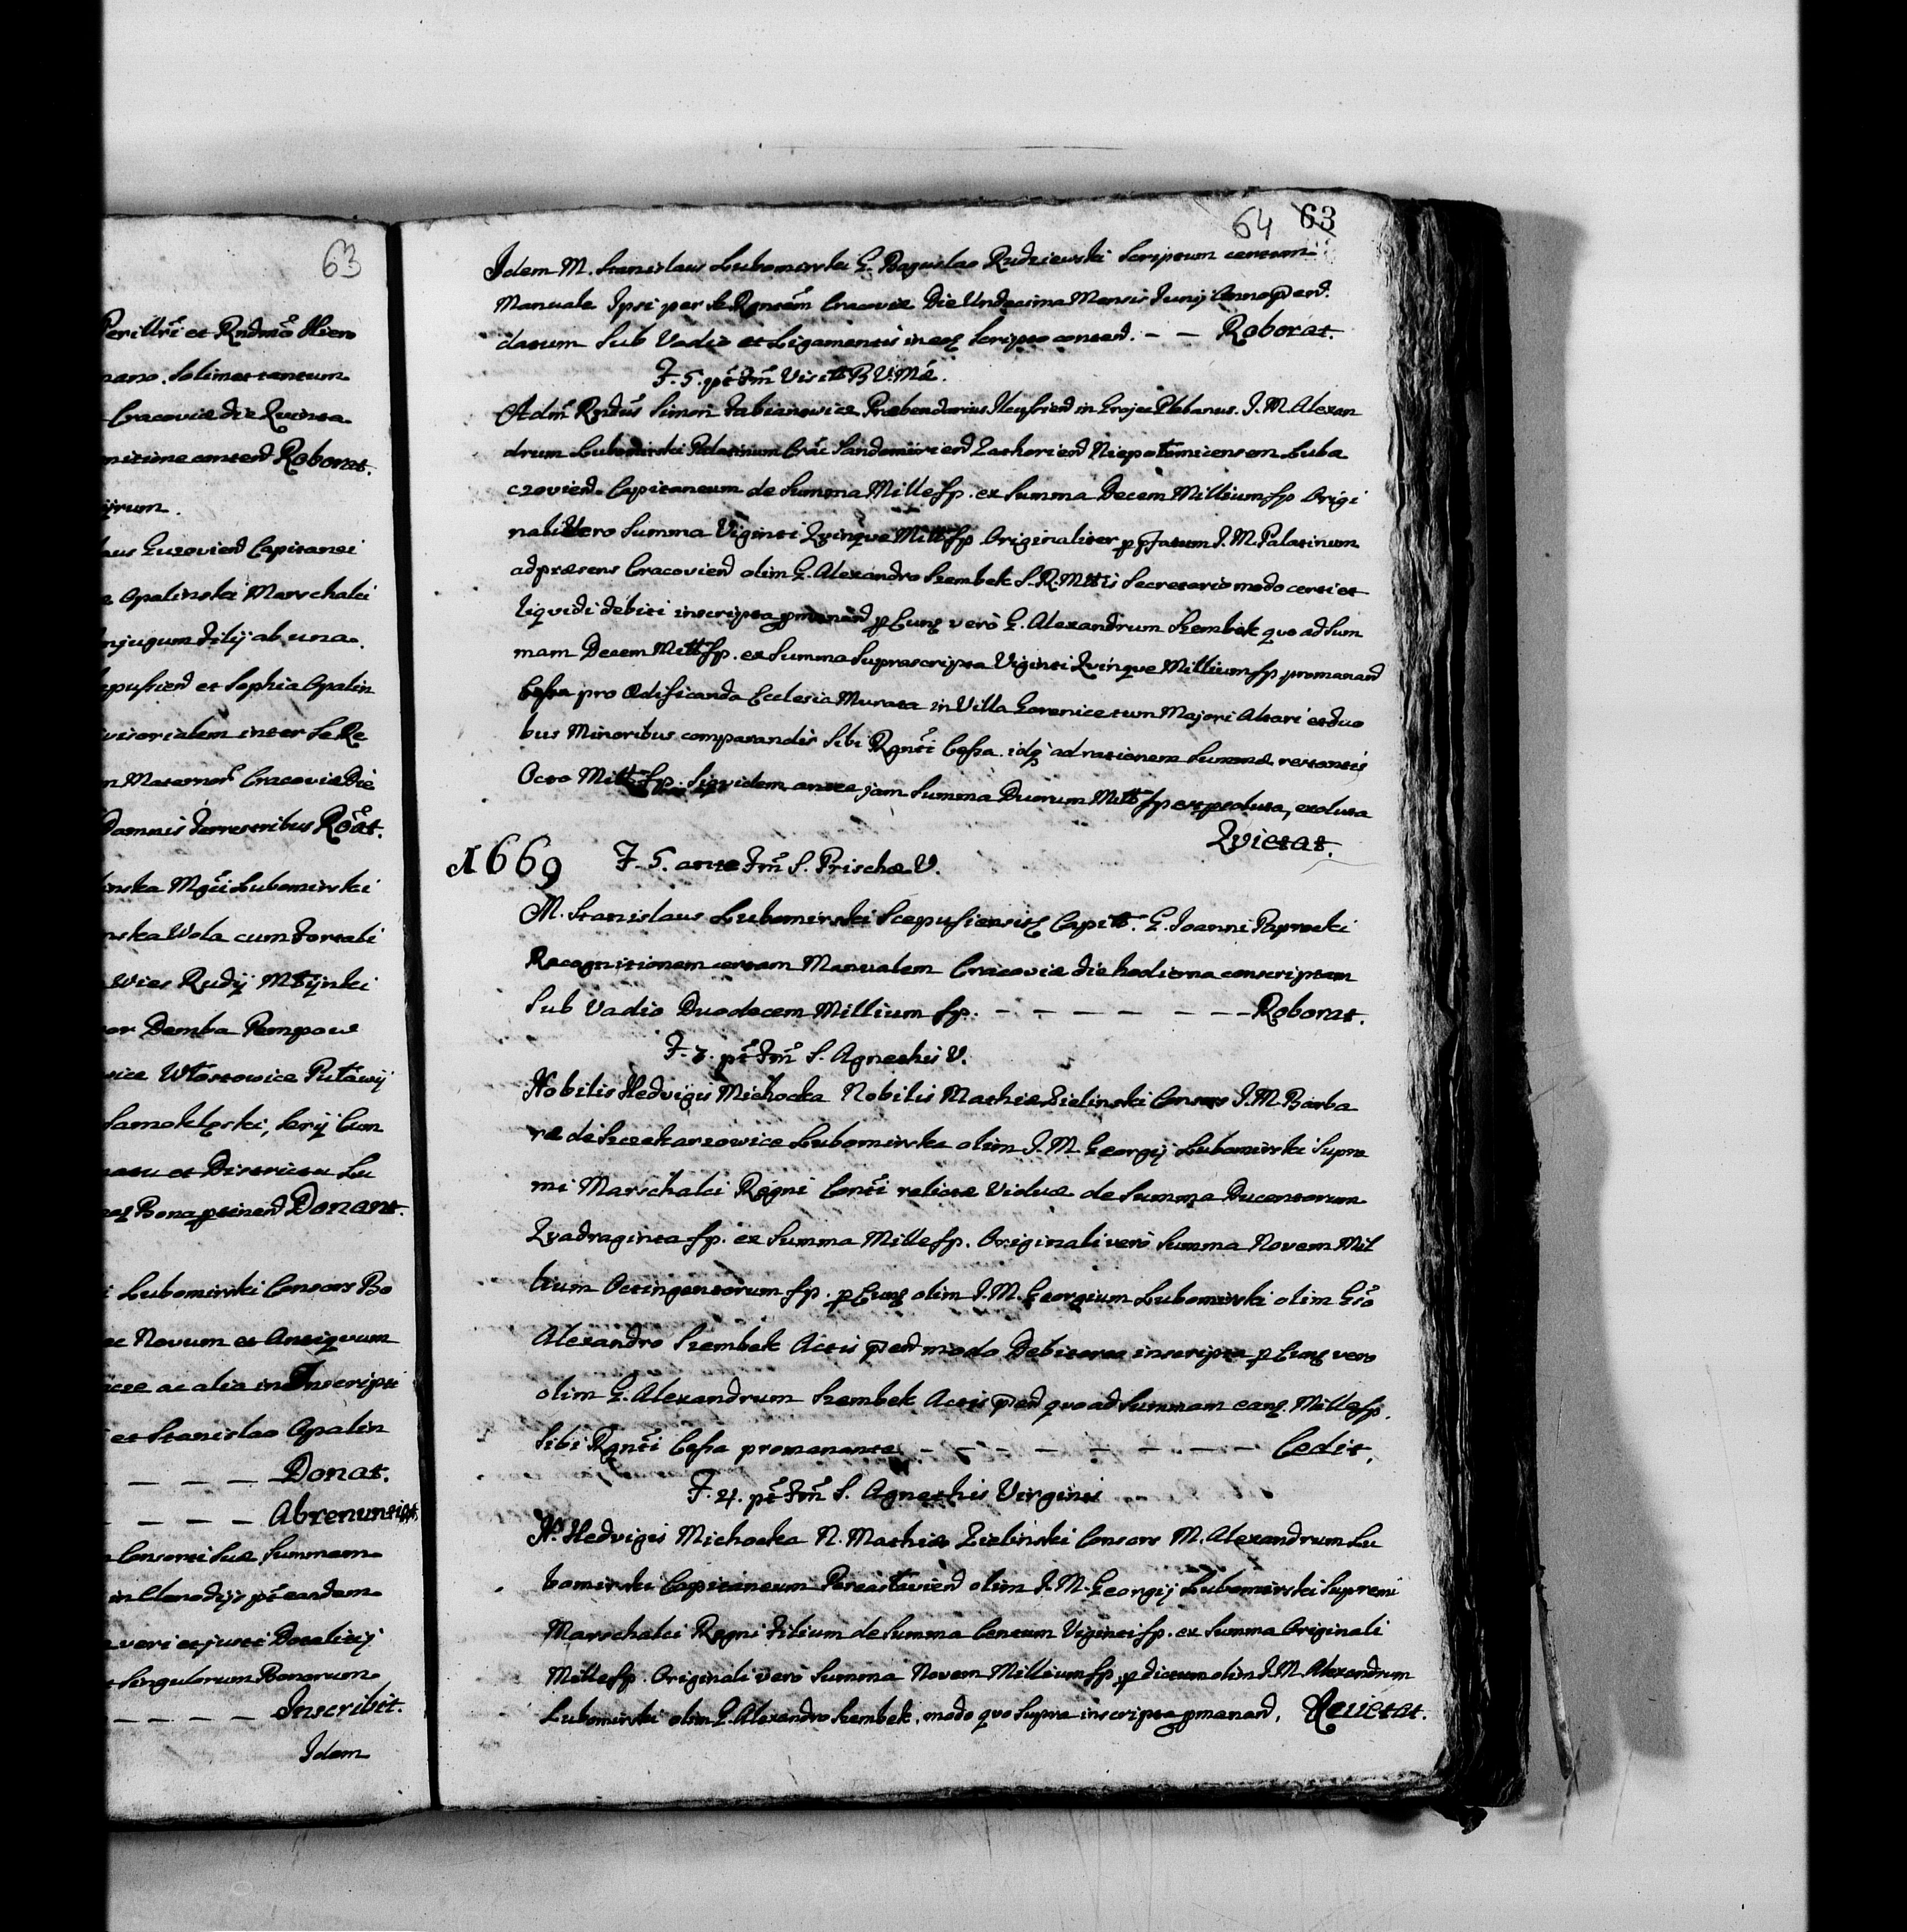 63
Perillri et Rndmo Hiero
mano. Solimet tantum
Cracoviæ die Quinta
nitione conten̄ Roborat.
rum.
aus Guzovien̄ Capitanei
Opalinski Marschalci
njugum Filij ab una
epusien̄ et Sophia Opalin
visorialem inter se Re
n Maternor̄ Cracoviæ Die
Damnis Terrestribus Roāt.
inska Mgci Lubomirski
nska Wola cum Fortali
Wies Rudy Młynki
or Demba Pempow
ice Włostowice Puławy
Samoklęski, Sery Cum
natu et Districtu Lu
Bona ptinen̄ Donant.
i Lubomirski Consors Bo
ac Novum et Antiqvum
ac alia in Inscripti
et Stanislao Opalin
— — — — Donat.
— — — — Abrenuntiat.
Consorti suæ Summam
in Clenodijs pt eandem
veri et justi Dotalitij
Singulorum Bonorum
— — — — Inscribit.
Idem
64 63
Idem M. Stanislaus Lubomirski G. Boguslao Rudziewski Scriptum certum
Manuale Ipsi per se Rgntem Cracoviæ Die Undecima Mensis Junij Anno p̄en̄.
datum sub Vadio et Ligamentis in eoq Scripto conten̄. — — Roborat.
F. 5. pt Fm̄ Visit B V Mæ.
Adm̄ Rndus Simon Fabianowicz Præbendarius Ilcusien̄ in Grojec Plebanus. I. M. Alexan
drum Lubomirski Palatinum Crac̄ Sandomirien̄ Zathorien̄ Niepołomicensem Luba
czovien̄. Capitaneum de Summa Mille fp. ex Summa Decem Millium fp Origi
nali Vero Summa Viginti Qvinqve Mill fp Originaliter p p̄fatum I. M. Palatinum
ad præsens Cracovien̄ olim G. Alexandro Szembek S. R. Mttis Secretario modo certi et
liqvidi debiti inscripta pmanan̄ p Eunq vero G. Alexandrum Szembek quo ad Sum
mam Decem Mill fp. ex Summa Suprascripta Viginti Qvinque Millium fp promanan̄
Cessa pro Ædificanda Ecclesia Murata in Villa Gorenice tum Majori Altari et duo
bus Minoribus comparandis Sibi Rgnti Cessa. idq ad rationem Summæ restantis
Octo Mill fp. Siqvidem antea jam Summa Duorum Mill fp est persoluta, exoluta
Qvietat.
1669 F. 5. ante Fm̄ S. Priscæ V.
M. Stanislaus Lubomirski Scepusiensisq Capitt. G. Joanni Paprocki
Recognitionem certam Manualem Cracoviæ die hodierna conscriptam
Sub Vadio Duodecem Millium fp. — — — — — — — Roborat.
F. 3. pt Fm̄ S. Agnethis V.
Nobilis Hedvigis Michocka Nobilis Mathiæ Zielinski Consors I. M. Barba
ræ de Szczekarzowice Lubomirska olim I. M. Georgij Lubomirski Supre
mi Marschalci Regni Conti relictæ Viduæ de Summa Ducentorum
Qvadraginta fp. ex Summa Mille fp. Originali vero Summa Novem Mil
lium Octingentorum fp. p Eunq olim I. M. Georgium Lubomirski olim Gso
Alexandro Szembek Actis p̄en̄ modo Debitorea inscripta p Eunq vero
olim G. Alexandrum Szembek Actis p̄en̄ quo ad Summam eanq. Mille fp.
Sibi Rgnti Cessa promanante — — — — — — — — Cedit.
F. 4. pt Fm̄ S. Agnethis Virginis
N. Hedvigis Michocka N. Mathiæ Zielinski Consors M. Alexandrum Lu
bomirski Capitaneum Pereasłavien̄ olim I. M. Georgij Lubomirski Supremi
Marschalci Regni Filium de Summa Centum Viginti fp. ex Summa Originali
Mille fp. Originali vero Summa Novem Millium fp p dictum olim I. M. Alexandrum
Lubomirski olim G. Alexandro Szembek, modo quo Supra inscripta pmanan̄, Qvietat.